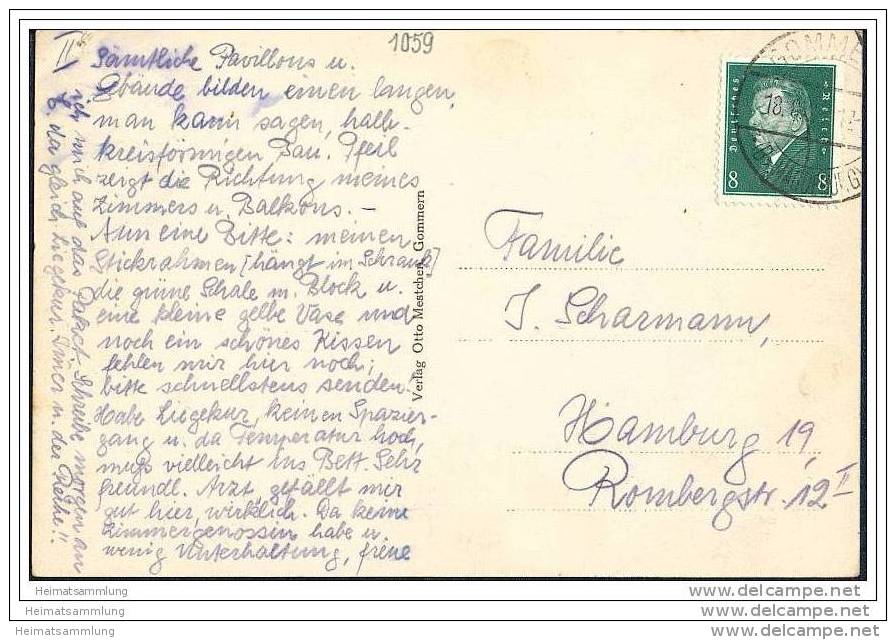 1059
II
Sämtliche Pavillons u.
Gebäude bilden einen langen,
man kann sagen, halb-
kreisförmigen Bau. Pfeil
zeigt die Richtung meines
Zimmers u. Balkons. –
Nun eine Bitte: meinen
Stickrahmen [hängt im Schrank]
die grüne Schale m. Block u.
eine kleine gelbe Vase und
noch ein schönes Kissen
fehlen mir hier noch;
bitte schnellstens senden.
Habe Liegekur, keinen Spazier-
gang u. da Temperatur hoch,
muß vielleicht ins Bett. Sehr
freundl. Arzt, gefällt mir
gut hier, wirklich. Da keine
Zimmergenossin habe u.
wenig Unterhaltung, freue
ich mich auf das Paket. Schreibe morgen an
da gleich Liegekur. Immer n. der Reihe!!
Verlag Otto Mestchen, Gommern
GOMME
18.
Deutsches Reich
8 8
Familie
J. Scharmann,
Hamburg 19,
Rombergstr. 12 II
www.delcampe.net
Heimatsammlung
www.delcampe.net
Heimatsammlung
www.delcampe.net
Heimatsammlung